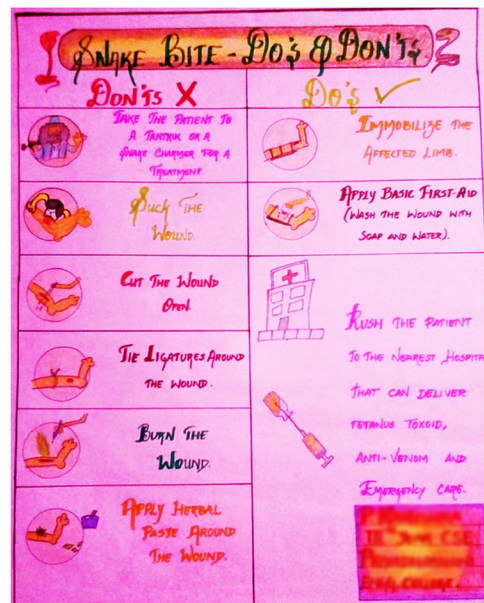 Snake Bite - Do's & Don'ts
Don'ts X
Do's ✓
Take the Patient to
a Tantrik or a
Snake Charmer for a
Treatment.
Suck the
Wound.
Cut the Wound
Open.
Tie Ligatures Around
the Wound.
Burn the
Wound.
Apply Herbal
Paste Around
the Wound.
Immobilize the
Affected Limb.
Apply Basic First-Aid
(Wash the Wound with
Soap and Water).
Rush the Patient
to the Nearest Hospita
that can deliver
Tetanus Toxoid,
Anti-Venom and
Emergency Care.